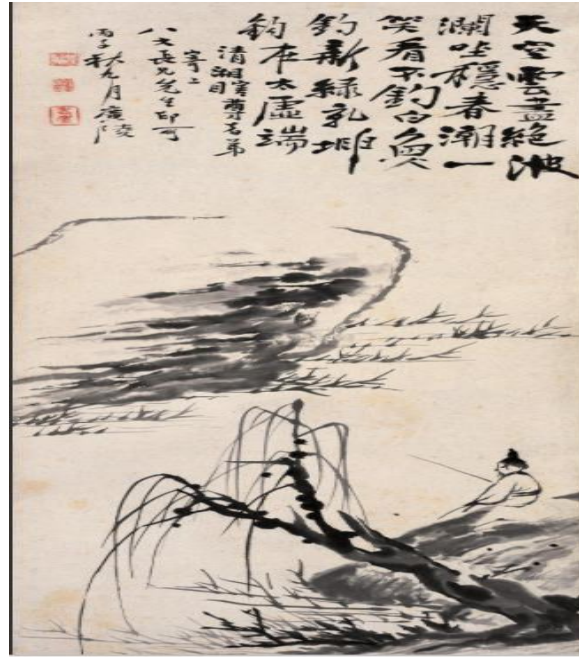 天空雲盡絕波
瀾坐穩春潮一
笑看不釣白魚
釣新綠乳堆
鈎在太虛端
清湘瞎尊者弟
寄上
八大長兄先生印可
丙子秋九月廣陵